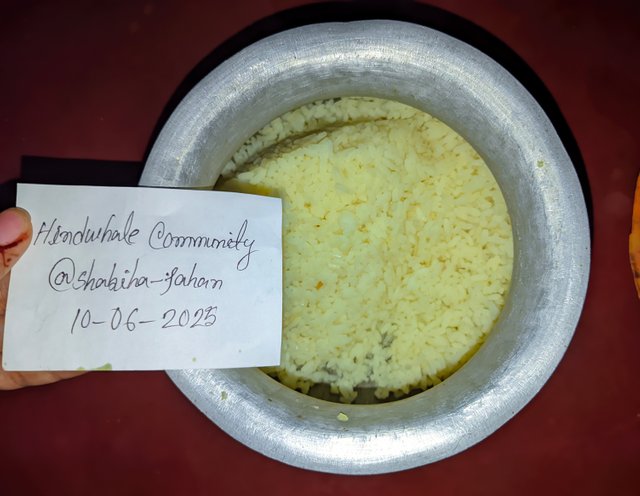 Hindwhale Community
@shabiha-jahan
10-06-2025